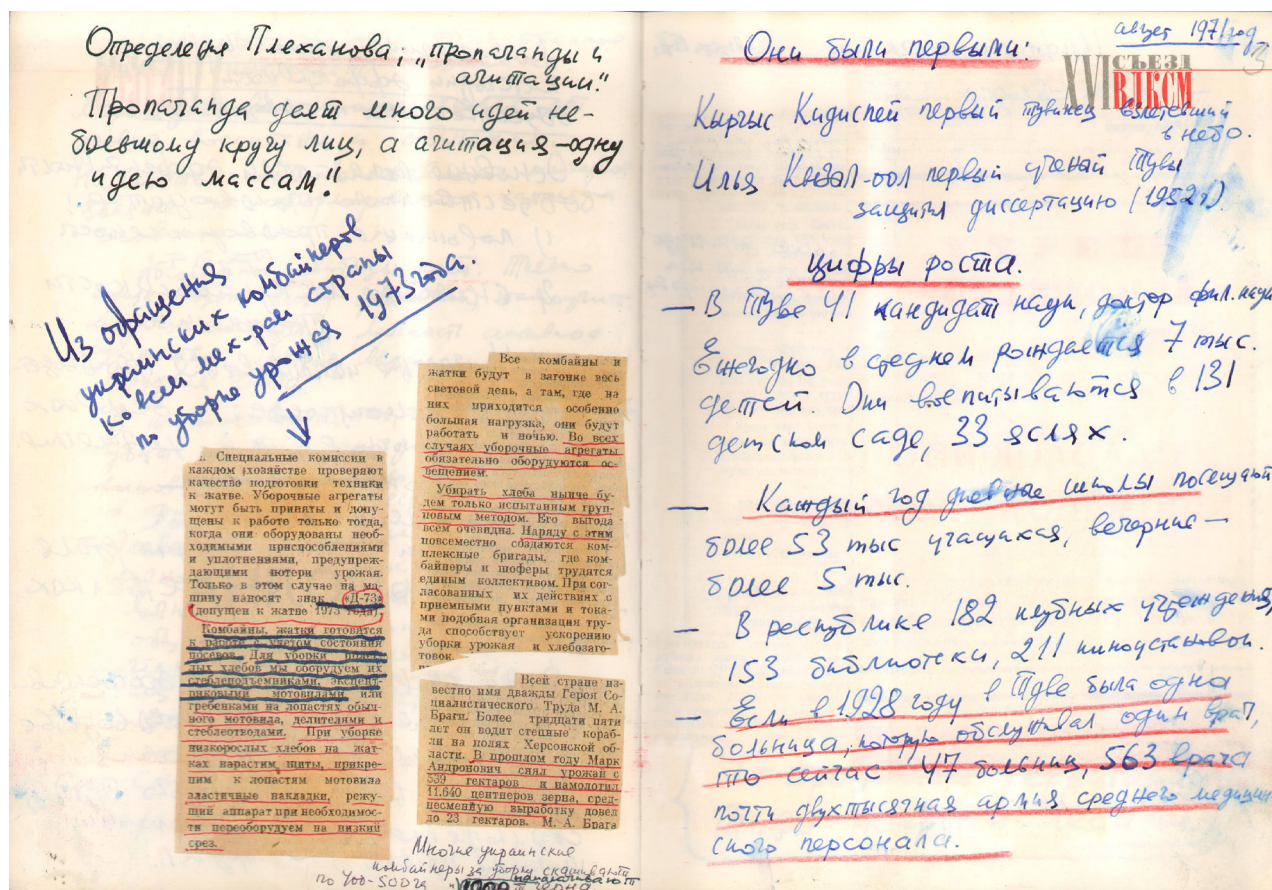 Определения Плеханова, „пропаганды и
агитации."
Пропаганда дает много идей не-
большому кругу лиц, а агитация – одну
идею массам."
Из обращения
украинских комбайнеров
ко всем мех-рам страны
по уборке урожая 1973 года.
. Специальные комиссии в
каждом хозяйстве проверяют
качество подготовки техники
к жатве. Уборочные агрегаты
могут быть приняты и допу-
щены к работе только тогда,
когда они оборудованы необ-
ходимыми приспособлениями
и уплотнениями, предупреж-
дающими потери урожая.
Только в этом случае на ма-
шину наносят знак «Д-73»
(допущен к жатве 1973 года).
Комбайны, жатки готовятся
к работе с учетом состояния
посевов. Для уборки полег-
лых хлебов мы оборудуем их
стеблеподъемниками, эксцент-
риковыми мотовилами или
гребенками на лопастях обыч-
ного мотовила, делителями и
стеблеотводами. При уборке
низкорослых хлебов на жат-
ках нарастим щиты, прикре-
пим к лопастям мотовила
эластичные накладки, режу-
щий аппарат при необходимос-
ти переоборудуем на низкий
срез.
Все комбайны и
жатки будут в загонке весь
световой день, а там, где на
них приходится особенно
большая нагрузка, они будут
работать и ночью. Во всех
случаях уборочные агрегаты
обязательно оборудуются ос-
вещением.
Убирать хлеба нынче бу-
дем только испытанным груп-
повым методом. Его выгода
всем очевидна. Наряду с этим
повсеместно создаются ком-
плексные бригады, где ком-
байнеры и шоферы трудятся
единым коллективом. При сог-
ласованных их действиях с
приемными пунктами и тока-
ми подобная организация тру-
да способствует ускорению
уборки урожая и хлебозаго-
товок.
Всей стране из-
вестно имя дважды Героя Со-
циалистического Труда М. А.
Браги. Более тридцати пяти
лет он водит степные кораб-
ли на полях Херсонской об-
ласти. В прошлом году Марк
Андронович снял урожай с
539 гектаров и намолотил
11.640 центнеров зерна, сред-
несменную выработку довел
до 23 гектаров. М. А. Брага
Многие украинские
комбайнеры за уборку скашивают
по 400-500га намолачивают
зерна
август 1971 год
3
XVI СЪЕЗД
ВЛКСМ
Они были первыми:
Кыргыс Кидиспей первый тувинец взлетевший
в небо.
Илья Кызал-оол первый ученый Тувы
защитил диссертацию (1952г).
Цифры роста.
– В Туве 41 кандидат наук, доктор фил. наук
Ежегодно в среднем рождается 7 тыс.
детей. Они воспитываются в 131
детском саде, 33 яслях.
– Каждый год дневные школы посещают
более 53 тыс учащихся, вечерние –
более 5 тыс.
– В республике 182 клубных учреждения,
153 библиотеки, 211 киноустановок.
– Если в 1928 году в Туве была одна
больница, которую обслуживал один врач,
то сейчас 47 больниц, 563 врача
почти двухтысячная армия среднего медицин
ского персонала.